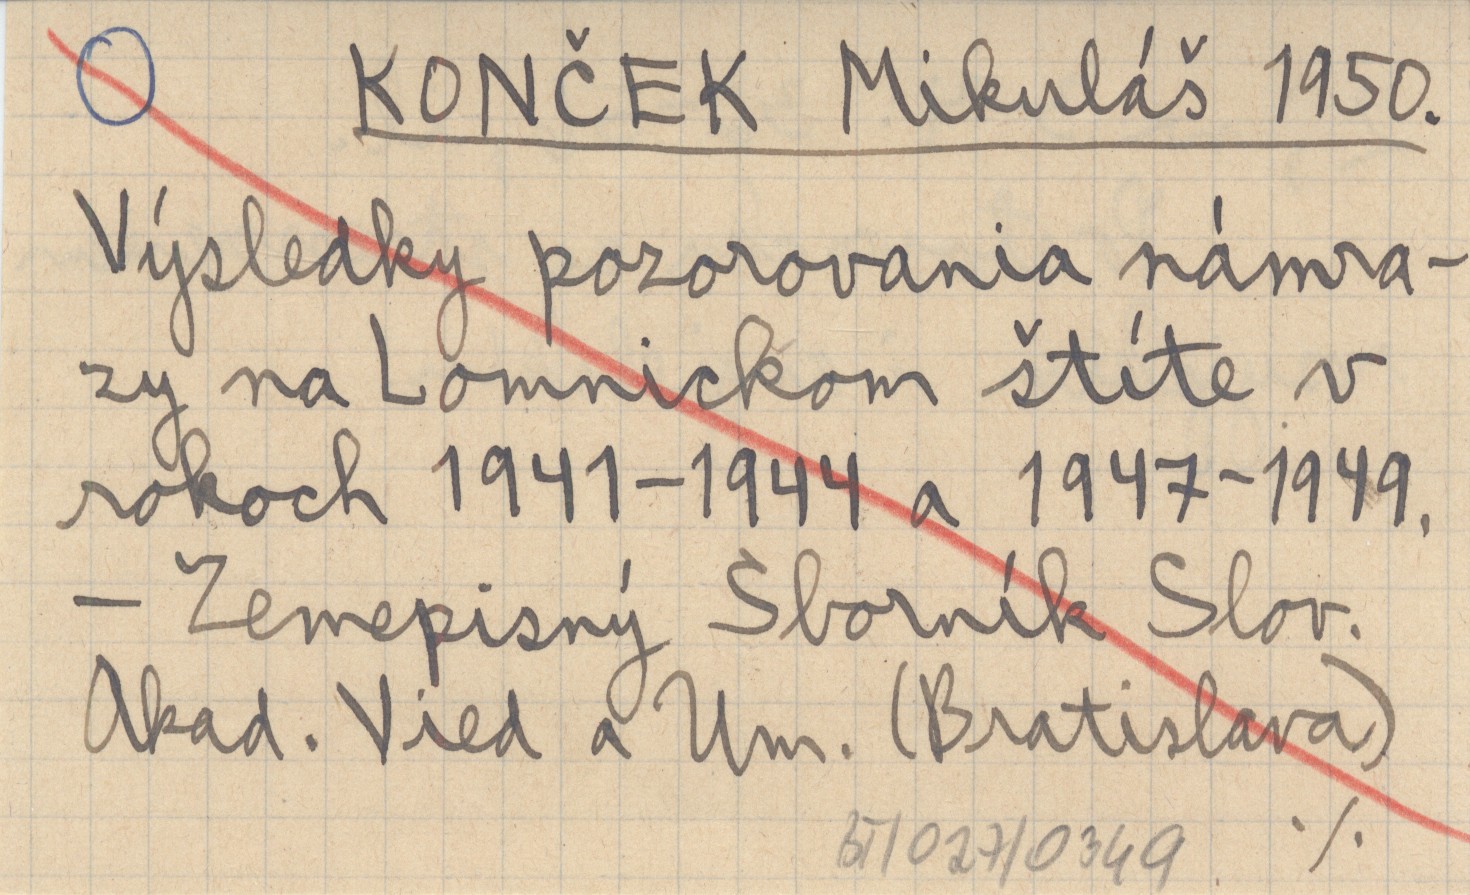 KONČEK Mikuláš 1950.
Výsledky pozorovania námra-
zy na Lomnickom štíte v
rokoch 1941-1944 a 1947-1949.
- Zemepisný Sborník Slov.
Akad. Vied a Um. (Bratislava)
BT/027/0349 ./.